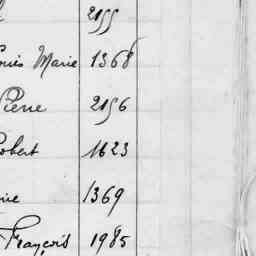 2155
Louis Marie 1368
Pierre 2156
Robert 1623
1369
François 1985